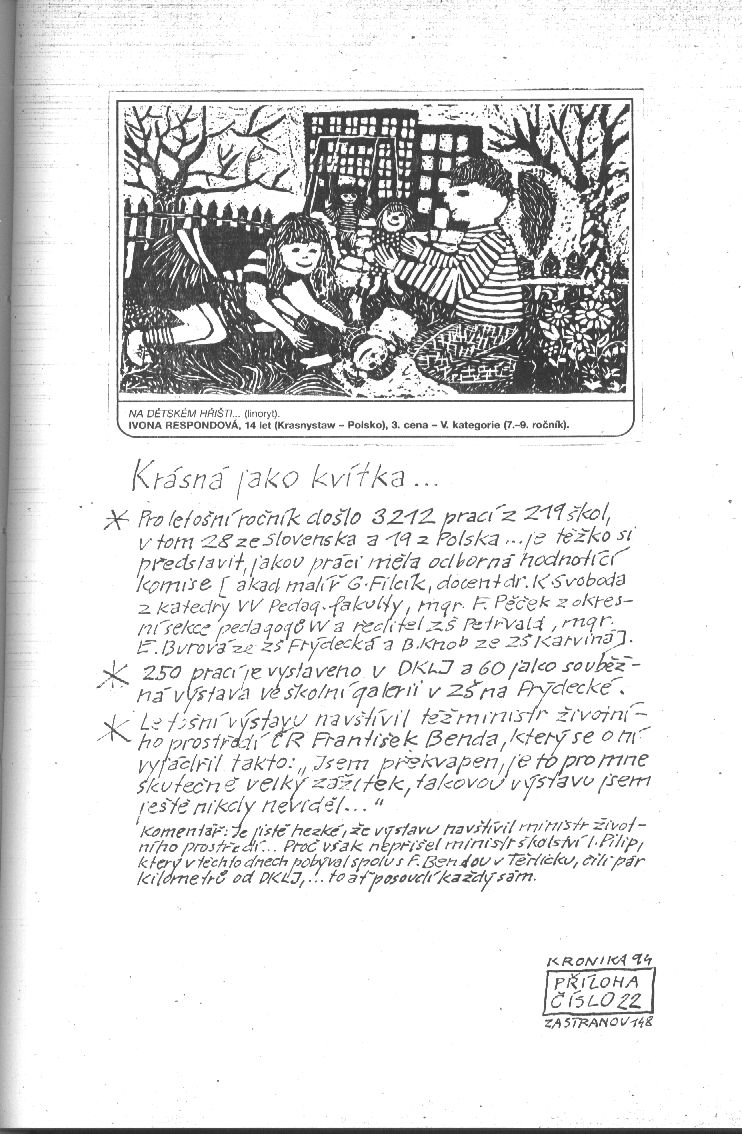 NA DĚTSKÉM HŘIŠTI... (linoryt).
IVONA RESPONDOVÁ, 14 let (Krasnystaw – Polsko), 3. cena – V. kategorie (7.–9. ročník).
Krásná jako kvítka...
* Pro letošní ročník došlo 3212 prací z 219 škol,
v tom 28 ze Slovenska a 19 z Polska... je těžko si
představit, jakou práci měla odborná hodnotící
komise [ akad malíř G. Filcik, docent dr. K Svoboda
z katedry VV Pedag. fakulty, mgr. F. Pěček z okres-
ní sekce pedagogů VV a ředitel ZŠ Petřvald, mgr.
E. Burová ze ZŠ Frýdecká a B. Knob ze ZŠ Karviná].
* 250 prací je vystaveno v DKLJ a 60 jako souběž-
ná výstava ve školní galerii v ZŠ na Frýdecké.
* Letošní výstavu navštívil též ministr životní-
ho prostředí ČR František Benda, který se o ní
vyjádřil takto: „Jsem překvapen, je to pro mne
skutečně velký zážitek, takovou výstavu jsem
ještě nikdy neviděl..."
Komentář: Je jistě hezké, že výstavu navštívil ministr život-
ního prostředí... Proč však nepřišel ministr školství I. Pilip,
který v těchto dnech pobýval spolu s F. Bendou v Těrlicku, čili pár
kilometrů od DKLJ,... to ať posoudí každý sám.
KRONIKA 94
PŘÍLOHA
ČÍSLO 22
ZA STRANOU 148